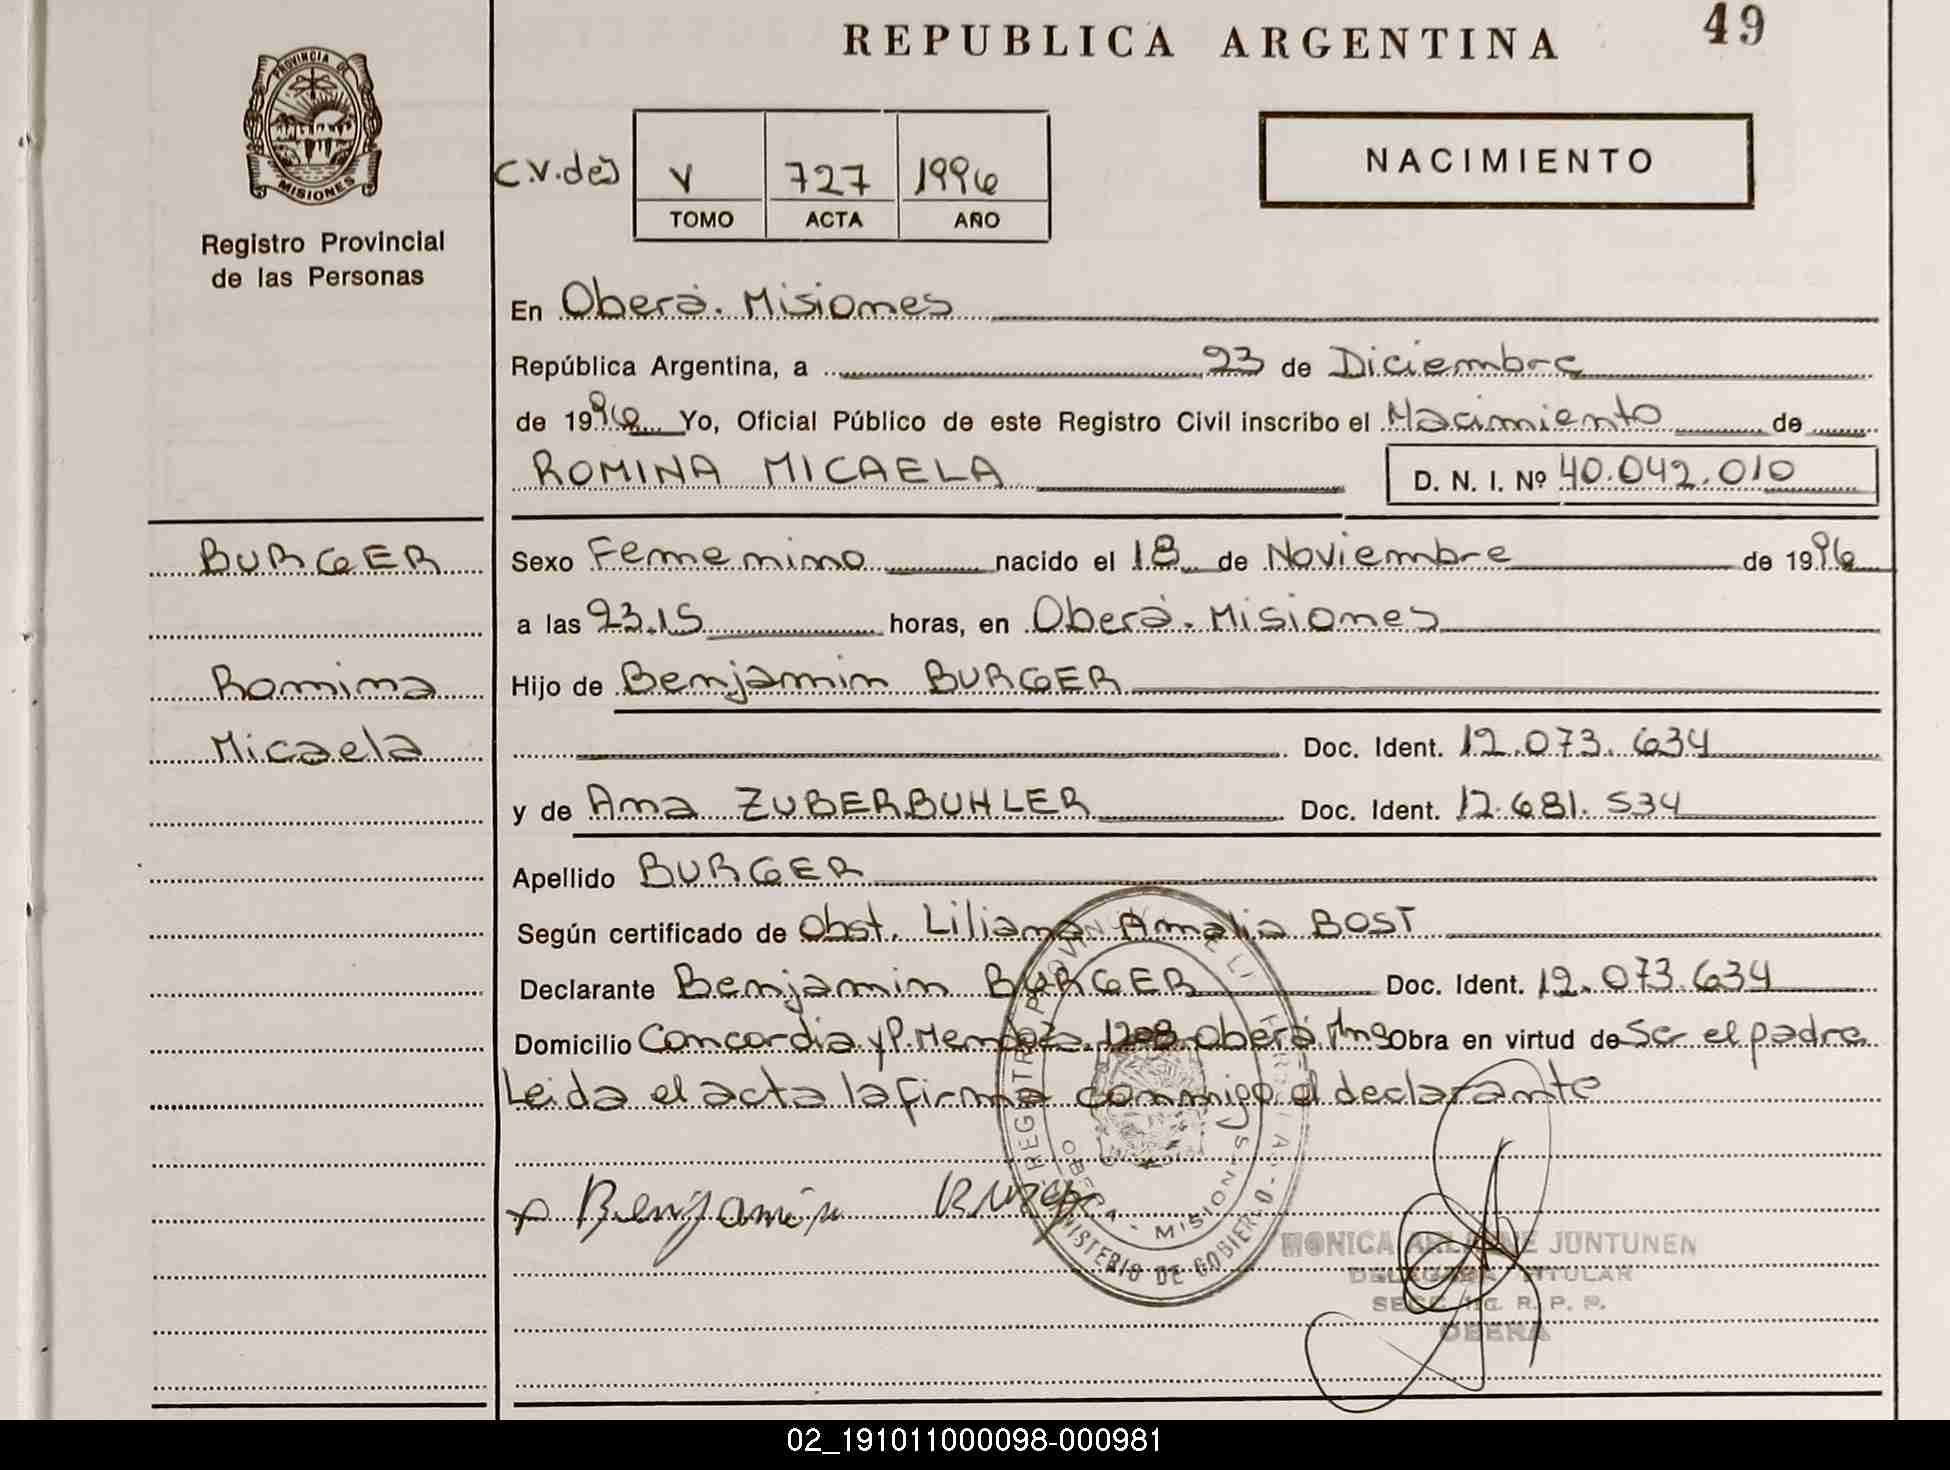 REPUBLICA ARGENTINA
49
PROVINCIA DE
MISIONES
Registro Provincial
de las Personas
C.V.des
V 727 1996
TOMO ACTA AÑO
NACIMIENTO
En Oberá. Misiones
República Argentina, a 23 de Diciembre
de 1996 Yo, Oficial Público de este Registro Civil inscribo el Nacimiento de
ROMINA MICAELA
D. N. I. Nº 40.042.010
BURGER
Romina
Micaela
Sexo Femenino nacido el 18 de Noviembre de 1996
a las 23.15 horas, en Oberá. Misiones
Hijo de Benjamin BURGER
Doc. Ident. 12.073.634
y de Ana ZUBERBUHLER Doc. Ident. 12.681.534
Apellido BURGER
Según certificado de Obst. Liliana Amalia BOST
Declarante Benjamin BURGER Doc. Ident. 12.073.634
Domicilio Concordia y P. Mendoza 1208 Oberá Mns Obra en virtud de Ser el padre
Leida el acta la firma conmigo el declarante
x Benjamin Burger
MINISTERIO DE GOBIERNO
OBERA - MISIONES
MONICA JUNTUNEN
DELEGADA TITULAR
SECC. R. P. P.
OBERA
02_191011000098-000981